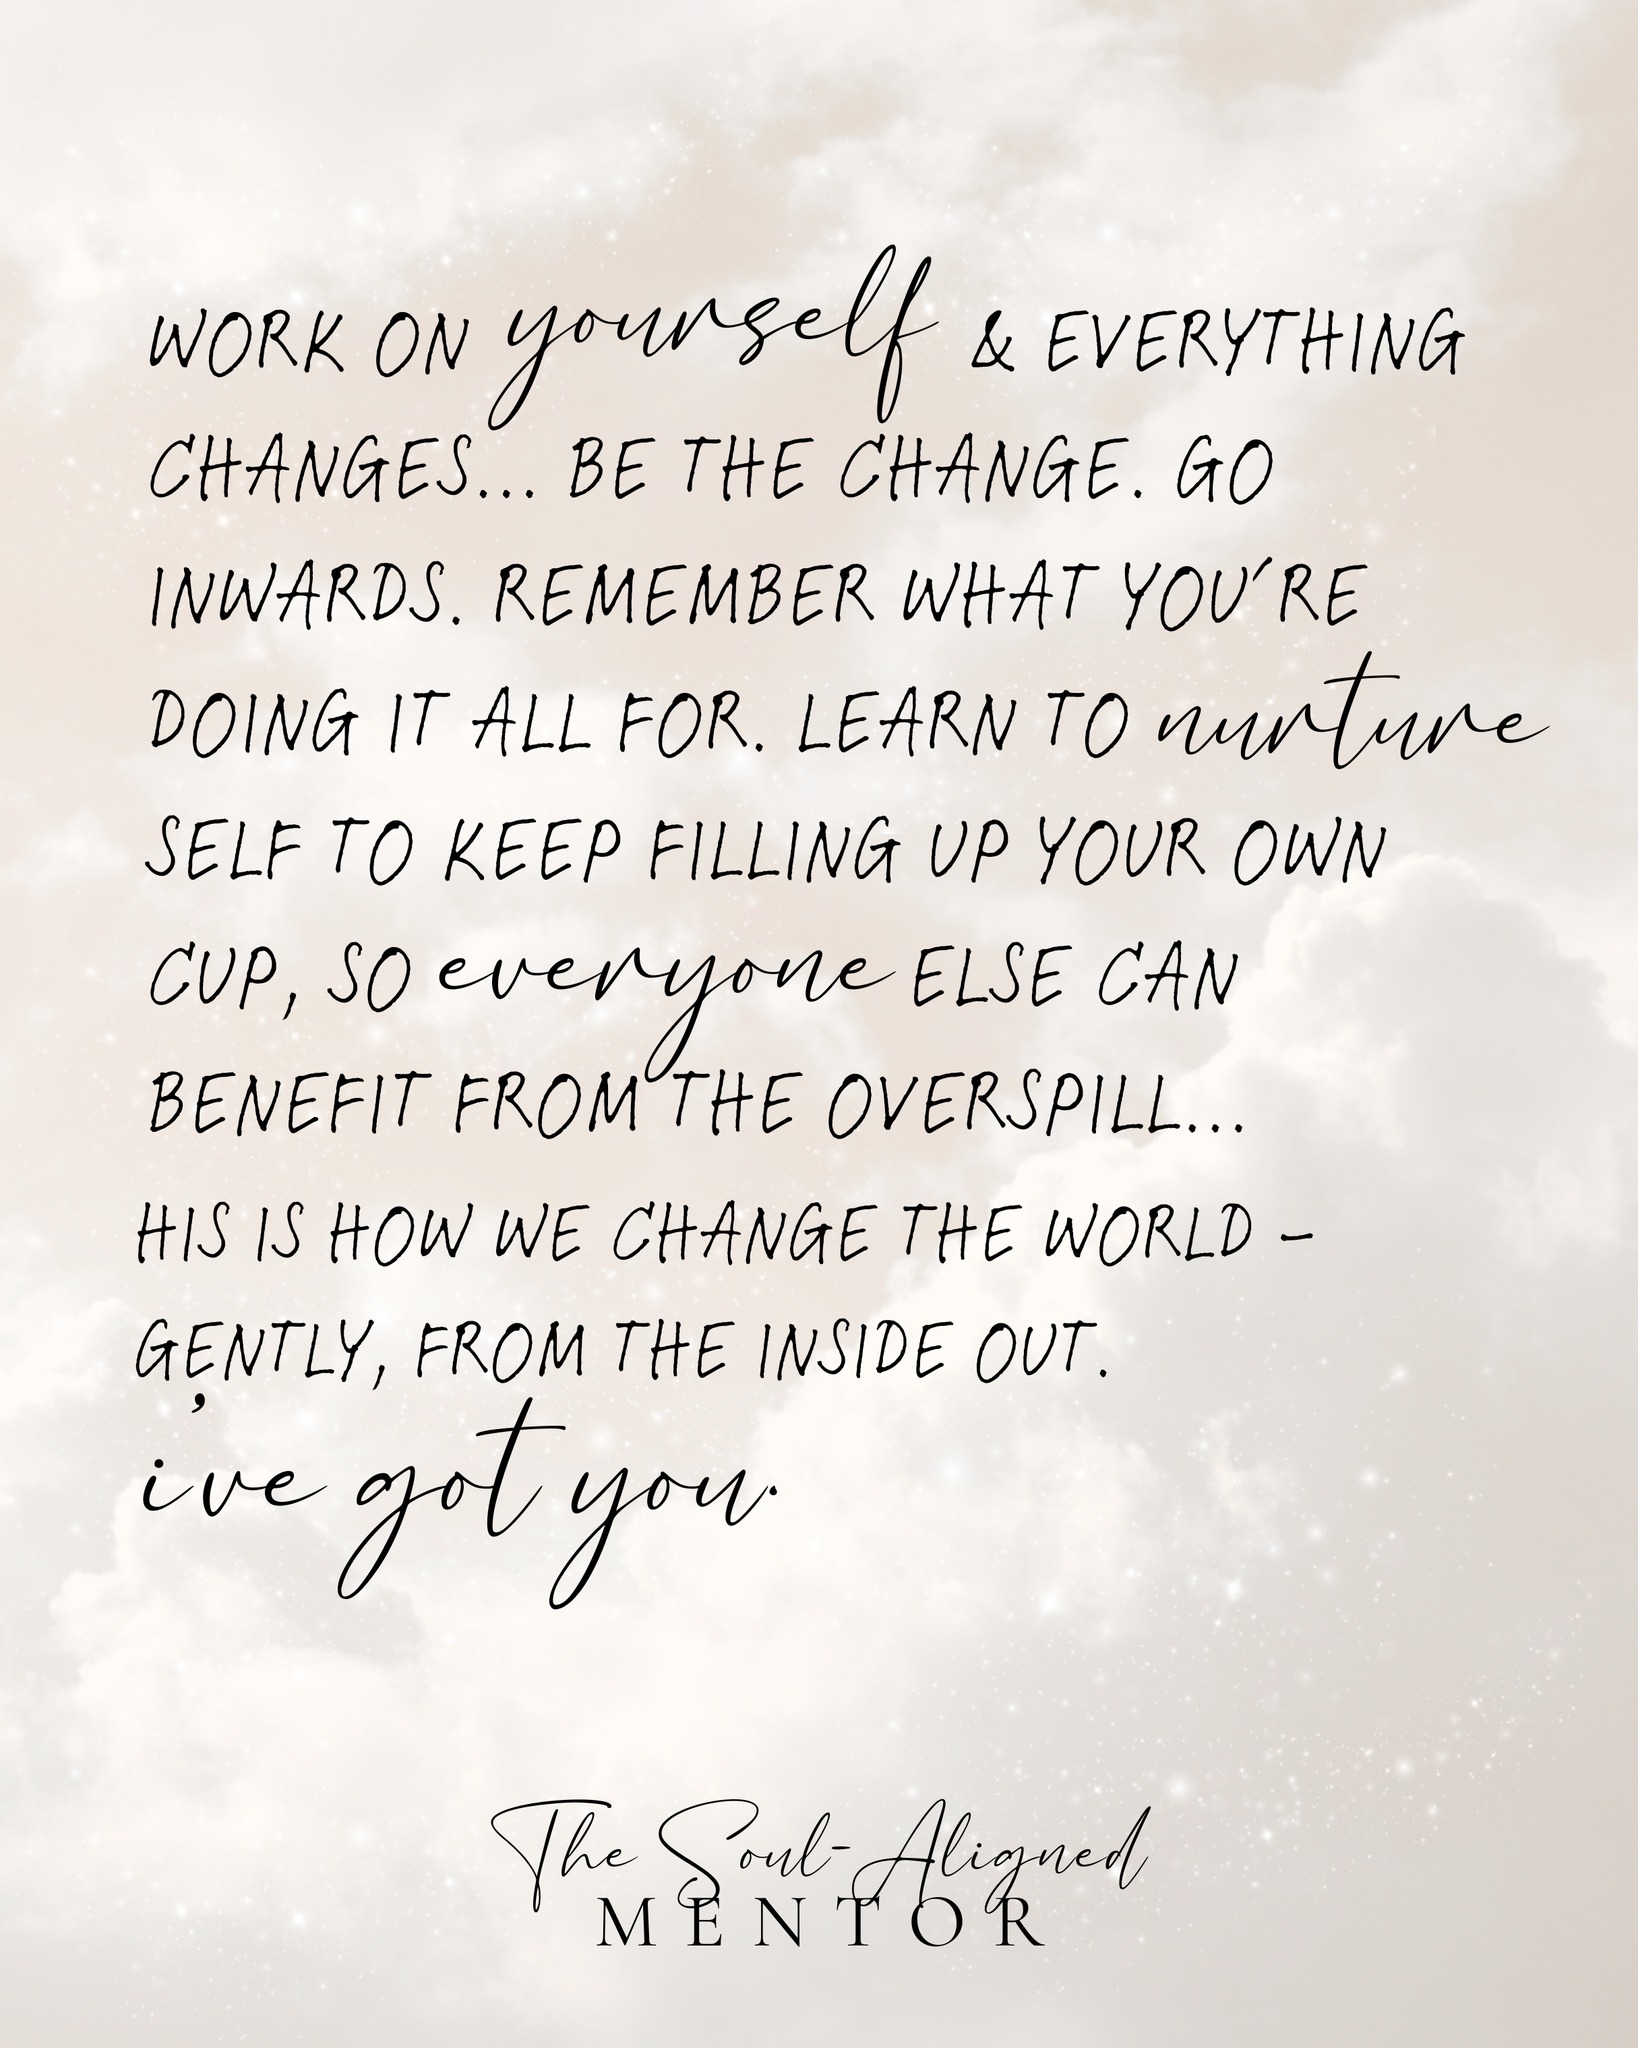 WORK ON yourself & EVERYTHING
CHANGES... BE THE CHANGE. GO
INWARDS. REMEMBER WHAT YOU'RE
DOING IT ALL FOR. LEARN TO nurture
SELF TO KEEP FILLING UP YOUR OWN
CUP, SO everyone ELSE CAN
BENEFIT FROM THE OVERSPILL...
HIS IS HOW WE CHANGE THE WORLD -
GENTLY, FROM THE INSIDE OUT.
i've got you.
The Soul-Aligned
MENTOR